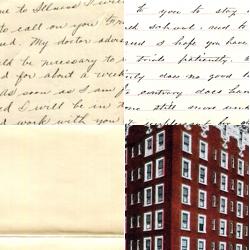 me to Illness I w
to call on you Gr
d. My doctor advis
ld be necessary to
d for about a week
as soon as I am f
d I will be in
d work with you
to you to stay
school, and to
and I hope you have
trials patiently.
only does no good
contrary does han
some still more un